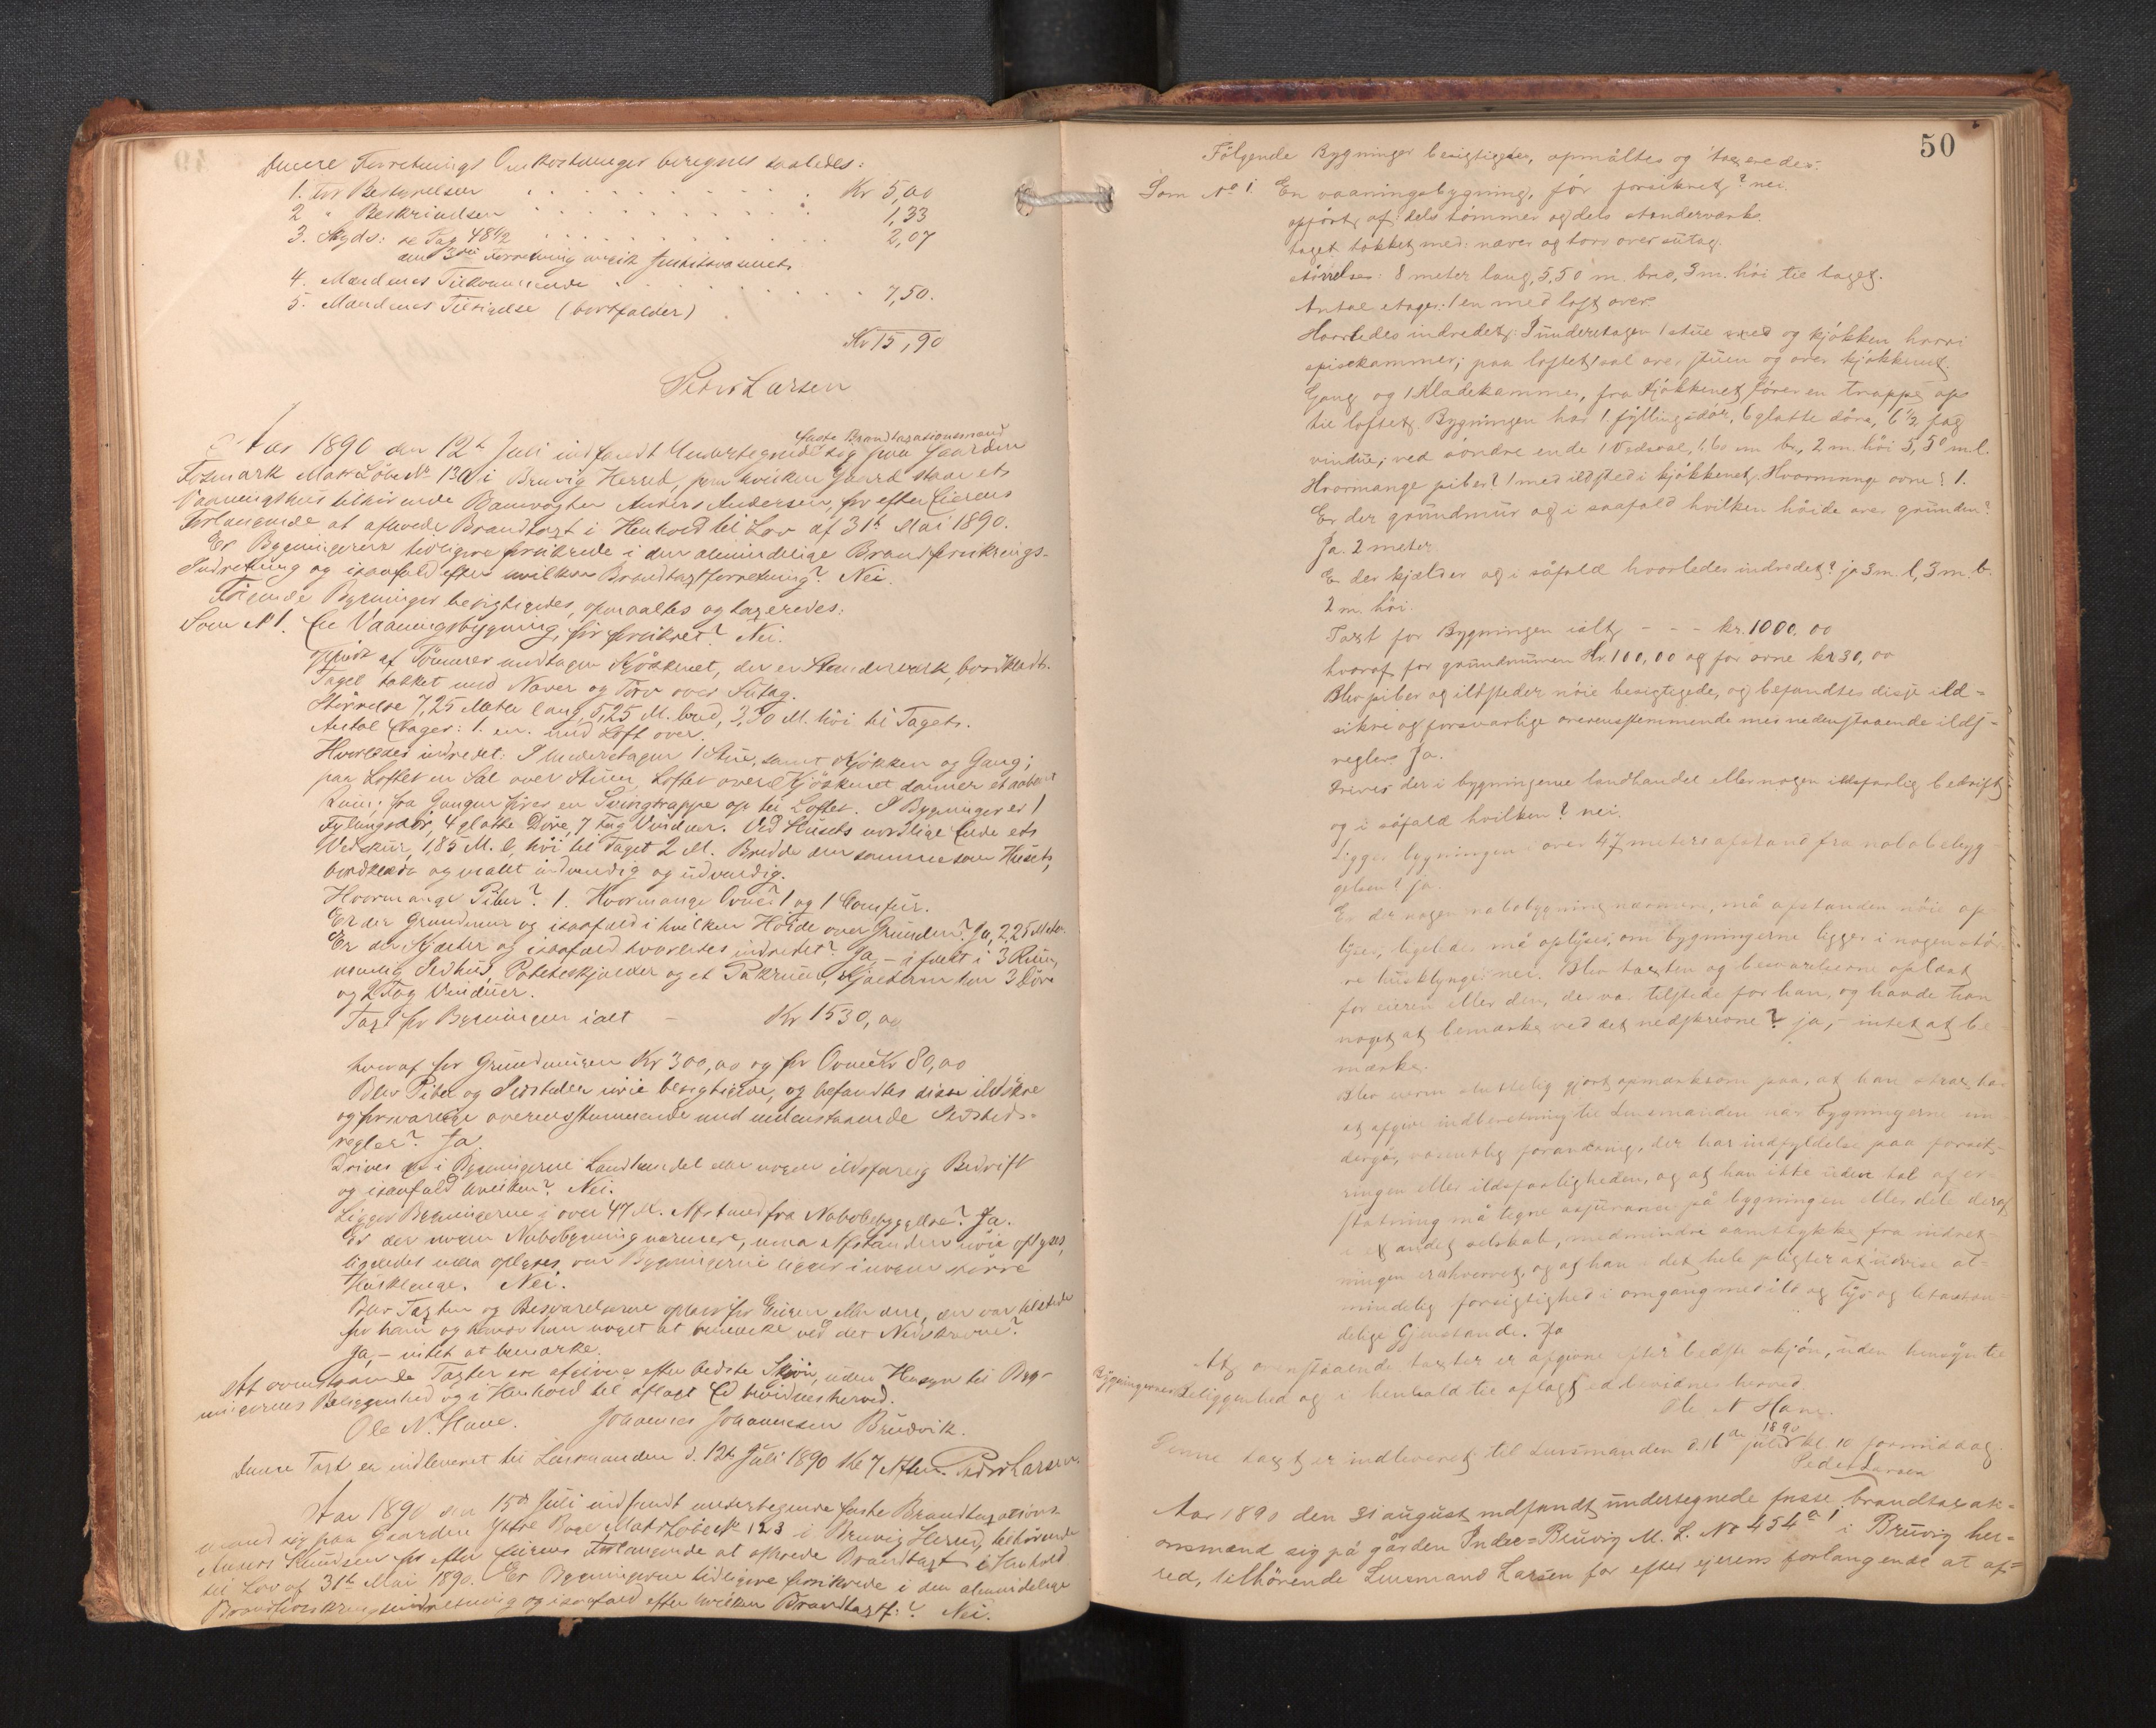 Denne Forretnings Omkostninger beregnes saaledes:
1. For Bestyrelsen . . . . Kr 5,00
2 " Beskrivelsen . . . . 1,33
3. Skyds: se Pag 48½ . . . . 2,07
den 3die Forretning
4. Mændenes Tilkommende . . . . 7,50.
5. Mændenes Tilsigelse (bortfalder)
Kr 15,90
Peder Larsen
Aar 1890 den 12te Juli indfandt Undertegnede faste Brandtaxationsmænd sig paa Gaarden
Fosmark Matr Löbe No 130 i Bruvig Herred, paa hvilken Gaard staar et
Vaaningshus tilhörende Banevogter Anders Andersen, for efter Eierens
Forlangende at afholde Brandtaxt i Henhold til Lov af 31te Mai 1890.
Er Bygningerne tidligere forsikrede i den almindelige Brandforsikrings-
Indretning og isaafald efter hvilken Brandtaxtforretning? Nei.
Følgende Bygninger besigtigedes, opmaaltes og taxeredes:
Som No 1. En Vaaningsbygning, för forsikret? Nei.
opfört af Tömmer undtagen Kjökkenet, der er Stenderværk, bordklædt.
Taget tækket med Næver og Torv over Sutag.
Störrelse 7,25 Meter lang, 5,25 M. bred, 3,30 M. höi til Taget.
Antal Etager: 1. en. med Loft over.
Hvorledes indredet: I Underetagen 1 Stue, samt Kjökken og Gang;
paa Loftet en Sal over Stuen, Loftet over Kjökkenet danner et aabent
Rum; fra Gangen förer en Svingtrappe op til Loftet. I Bygningen er 1
Fyldingsdör, 4 glatte Döre, 7 Fag Vinduer. Ved Husets nordlige Ende et
Vedskur, 1,85 M. l, höi til Taget 2 M. Bredde den samme som Husets,
bordklædt og malet indvendig og udvendig.
Hvormange Piber? 1. Hvormange Ovne? 1 og 1 Comfur.
Er der Grundmur og isaafald i hvilken Höide over Grunden? Ja, 2,25 Meter.
Er der Kjælder og isaafald hvorledes indredet? Ja, – afdelt i 3 Rum,
nemlig Ildhus, Poteteskjælder og et Pakrum, Kjælderen har 3 Döre
og 2 Fag Vinduer.
Taxt for Bygningen ialt – Kr 1530,00
hvoraf for Grundmuren Kr 300,00 og for Ovne Kr 80,00
Blev Piber og Ildsteder nöie besigtigede, og befandtes disse ildsikre
og forsvarlige overensstemmende med nedenstaaende Ildsteds-
regler? Ja.
Drives der i Bygningerne Landhandel eller nogen ildsfarlig Bedrift
og isaafald hvilken? Nei.
Ligger Bygningerne i over 47 M. Afstand fra Nabobebyggelse? Ja.
Er der nogen Nabobygning nærmere, maa Afstanden nöie oplyses,
ligeledes maa oplyses, om Bygningerne ligger i nogen större
Husklynge. Nei.
Blev Taxten og Besvarelserne oplæst for Eieren eller den, der var tilstede
for ham og havde han noget at bemærke ved det Nedskrevne?
Ja, – intet at bemærke.
At ovenstaaende Taxter er afgivne efter bedste Skjön, uden Hensyn til Byg-
ningernes Beliggenhed og i Henhold til aflagt Ed bevidnes herved.
Ole N. Hane. Johannes Johannessen Brudvik.
Denne Taxt er indleveret til Lensmanden d. 12te Juli 1890 Kl 7 Aften. Peder Larsen
Aar 1890 den 15de Juli indfandt undertegnede faste Brandtaxations-
mænd sig paa Gaarden Ytre Boge Matr Löbe No 123 i Bruvig Herred, tilhörende
Anders Knudsen for efter Eierens Forlangende at afholde Brandtaxt i Henhold
til Lov af 31te Mai 1890. Er Bygningerne tidligere forsikrede i den almindelige
Brandforsikringsindretning og isaafald efter hvilken Brandtaxtf:? Nei.
50
Fölgende Bygninger besigtigedes, opmåltes og taxeredes:
Som No 1. En vaaningsbygning, för forsikret? nei.
opfört af: dels tömmer og dels stenderværk.
taget tækket med: næver og torv over sutag.
störrelse: 8 meter lang, 5,50 m. bred, 3 m. höi til taget.
Antal etager: 1 en med loft over.
Hvorledes indredet: I underetagen 1 stue og kjökken hvori
spisekammer; paa loftet sal over stuen og over kjökkenet
Gang og 1 Klædekammer, fra Kjökkenet förer en trappe op
til loftet. Bygningen har 1 fyllingsdör, 6 glatte döre, 6½ fag
vindue; ved söndre ende 1 Vedsval, 1,60 m br, 2 m. höi 5,50 m l.
Hvormange piber? 1 med ildsted i kjökkenet. Hvormange ovne? 1.
Er der grundmur og i saafald hvilken höide over grunden?
Ja. 2 meter
Er der kjælder og i såfald hvorledes indredet? ja 3 m. l, 3 m. b.
2 m. höi.
Taxt for Bygningen ialt - - - kr. 1000,00
hvoraf for grundmuren Kr. 100,00 og for ovne kr 30,00
Blev piber og ildsteder nöie besigtigede, og befandtes disse ild=
sikre og forsvarlige overensstemmende med nedenstaaende ilds-
regler. Ja.
Drives der i bygningerne landhandel eller nogen ildsfarlig bedrift
og i såfald hvilken? nei.
Ligger bygningen i over 47 meters afstand fra nabobebyg-
gelsen? ja.
Er der nogen nabobygning nærmere, må afstanden nöie op-
lyses, ligeledes må oplyses, om bygningerne ligger i nogen stör-
re husklynge: nei. Blev taxten og besvarelserne oplæst
for eieren eller den, der var tilstede for han, og havde han
noget at bemærke ved det nedskrevne? ja, – intet at be-
mærke.
Blev eieren sluttelig gjort opmærksom paa, at han strax har
at afgive indberetning til Lensmanden når bygningerne un-
dergår væsentlig forandring, der har indflydelse paa forsik-
ringen eller ildsfarligheden, og at han ikke uden tab af er-
statning må tegne assurance på bygningen eller dele deraf
i et andet selskab, medmindre samtykke fra indret-
ningen erhverves, og at han i det hele pligter at udvise al-
mindelig forsigtighed i omgang med ild og lys og letantæn-
delige Gjenstande. Ja
At ovenstaaende taxter er afgivne efter bedste skjön, uden hensyn til
Bygningernes Beliggenhed og i henhold til aflagt ed bevidnes herved.
Ole N Hane.
Denne taxt er indleveret til Lensmanden d. 16de juli 1890 kl 10 formiddag.
Peder Larsen
Aar 1890 den 31 august indfandt undertegnede faste brandtaxati-
onsmænd sig på gården Indre=Bruvig M. L. No 454 a 1 i Bruvig her-
red, tilhörende Lensmand Larsen for efter ejerens forlangende at af=